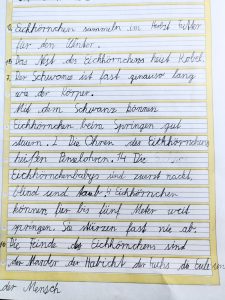 Eichhörnchen sammeln im Herbst Futter
für den Winter.
10. Das Nest des Eichhörnchens heist Kobel.
7. Der Schwanz ist fast genauso lang
wie der Körper.
Mit dem Schwanz können
Eichhörnchen beim Springen gut
steuern. 2. Die Ohren des Eichhörnchens
heißen Pinselohren. 14. Die
Eichhörnchenbabys sind zuerst nackt,
blind und taub. 9 Eichhörnchen
können vier bis fünf Meter weit
springen. Sie stürzen fast nie ab.
Die Feinde des Eichhörnchens sind
der Marder der Habicht der Fuchs die Eule un
der Mensch